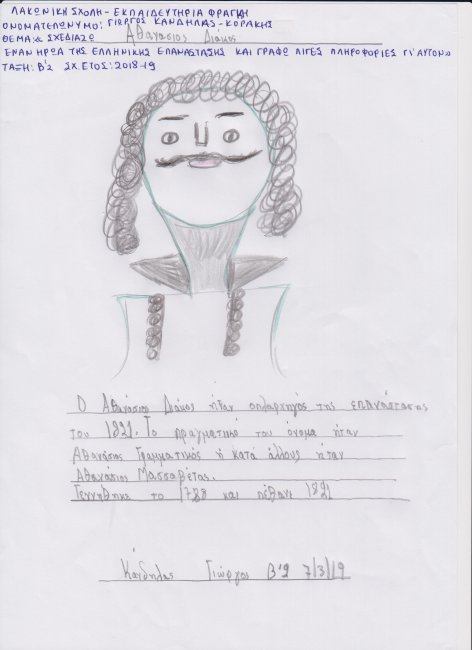 ΛΑΚΩΝΙΚΗ ΣΧΟΛΗ - ΕΚΠΑΙΔΕΥΤΗΡΙΑ ΦΡΑΓΚΗ
ΟΝΟΜΑΤΕΠΩΝΥΜΟ: ΓΙΩΡΓΟΣ ΚΑΝΔΗΛΑΣ - ΚΟΡΑΚΗΣ
ΘΕΜΑ: « ΣΧΕΔΙΑΖΩ Αθανάσιος Διάκος
ΕΝΑΝ ΗΡΩΑ ΤΗΣ ΕΛΛΗΝΙΚΗΣ ΕΠΑΝΑΣΤΑΣΗΣ ΚΑΙ ΓΡΑΦΩ ΛΙΓΕΣ ΠΛΗΡΟΦΟΡΙΕΣ ΓΙ' ΑΥΤΟΝ»
ΤΑΞΗ: Β'2 ΣΧ. ΕΤΟΣ: 2018-19
Ο Αθανάσιος Διάκος ήταν οπλαρχηγός της επανάστασης
του 1821. Το πραγματικό του όνομα ήταν
Αθανάσιος Γραμματικός ή κατά άλλους ήταν
Αθανάσιος Μασσαβέτας.
Γεννήθηκε το 1788 και πέθανε 1821
Κανδηλας Γιώργος Β'2 7/3/19